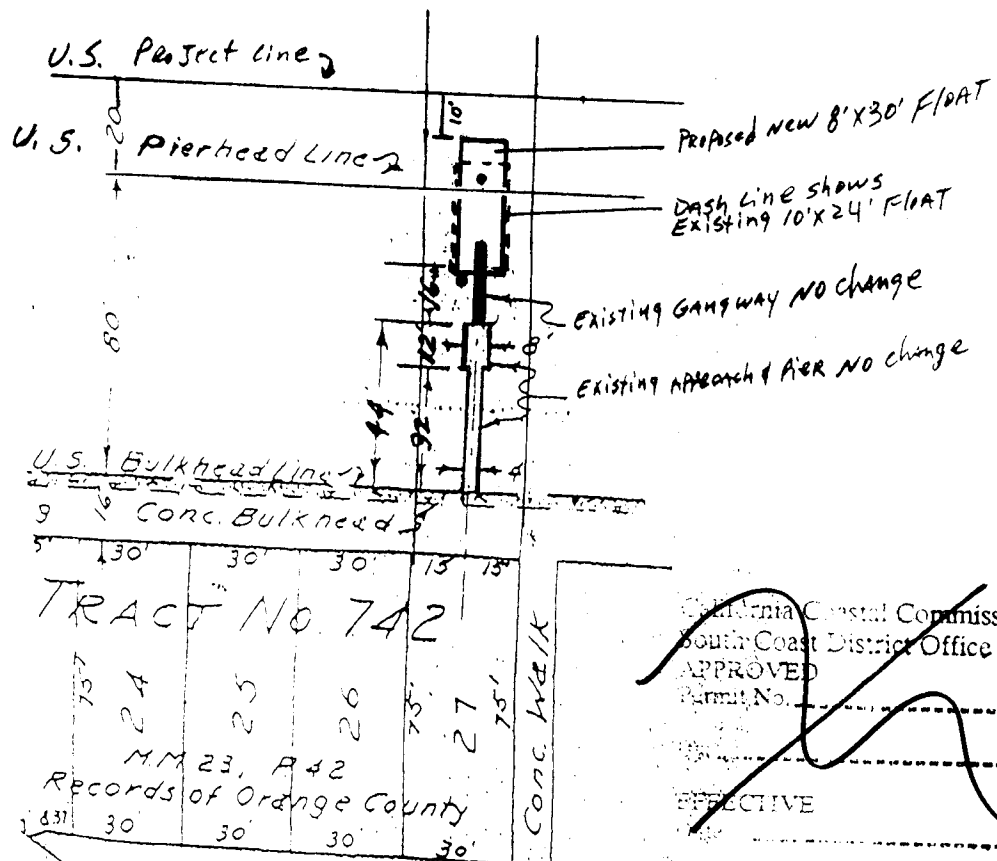 U.S. Project line
20
10'
U.S. Pierhead Line
Proposed new 8'x30' FloAT
Dash line shows
Existing 10'x24' FloAT
80
16
12
8'
Existing GANGWAY NO change
Existing APPROACH & PIER NO change
44'
32
4
U.S. Bulkhead Line
9 16 Conc. Bulkhead
5' 30' 30' 30' 15 15'
TRACT No. 742
75' 24 25 26 75' 27 75'
Conc. Walk
M.M. 23, P 42
Records of Orange County
30 30 30' 30'
California Coastal Commiss
South Coast District Office
APPROVED
Permit No.
EFFECTIVE